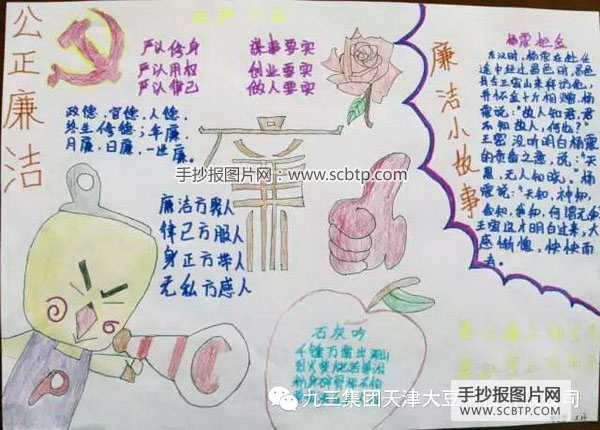 公正廉洁
严以修身 谋事要实
严以用权 创业要实
严以律己 做人要实
政德，官德，人德，
终生修德；年廉，
月廉，日廉，一世廉。
廉
手抄报图片网：www.scbtp.com
廉洁方聚人
律己方服人
身正方带人
无私方感人
廉洁小故事
杨震拒金
东汉时，杨震在赴任
途中经过昌邑时，昌邑
县令王密
并怀金十斤相赠。杨
震说："故人知君，君
不知故人，何也？"
王密没听明白杨震
的责备之意，说："天
黑，无人知晓。"杨
震说："天知，神知，
王密这才明白过来，大
感惭愧，怏怏而
去。
石灰吟
千锤万凿出深山
九三集团天津大豆
手抄报图片网
WWW.SCBTP.COM
司